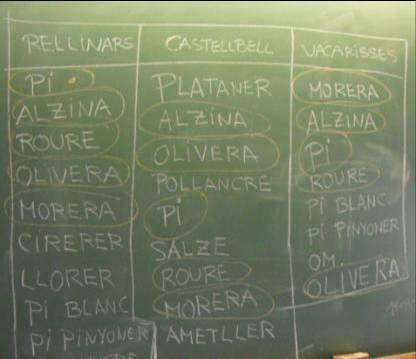 RELLINARS
PI
ALZINA
ROURE
OLIVERA
MORERA
CIRERER
LLORER
PI BLANC
PI PINYONER
CASTELLBELL
PLATANER
ALZINA
OLIVERA
POLLANCRE
PI
SALZE
ROURE
MORERA
AMETLLER
VACARISSES
MORERA
ALZINA
PI
ROURE
PI BLANC
PI PINYONER
OM.
OLIVERA